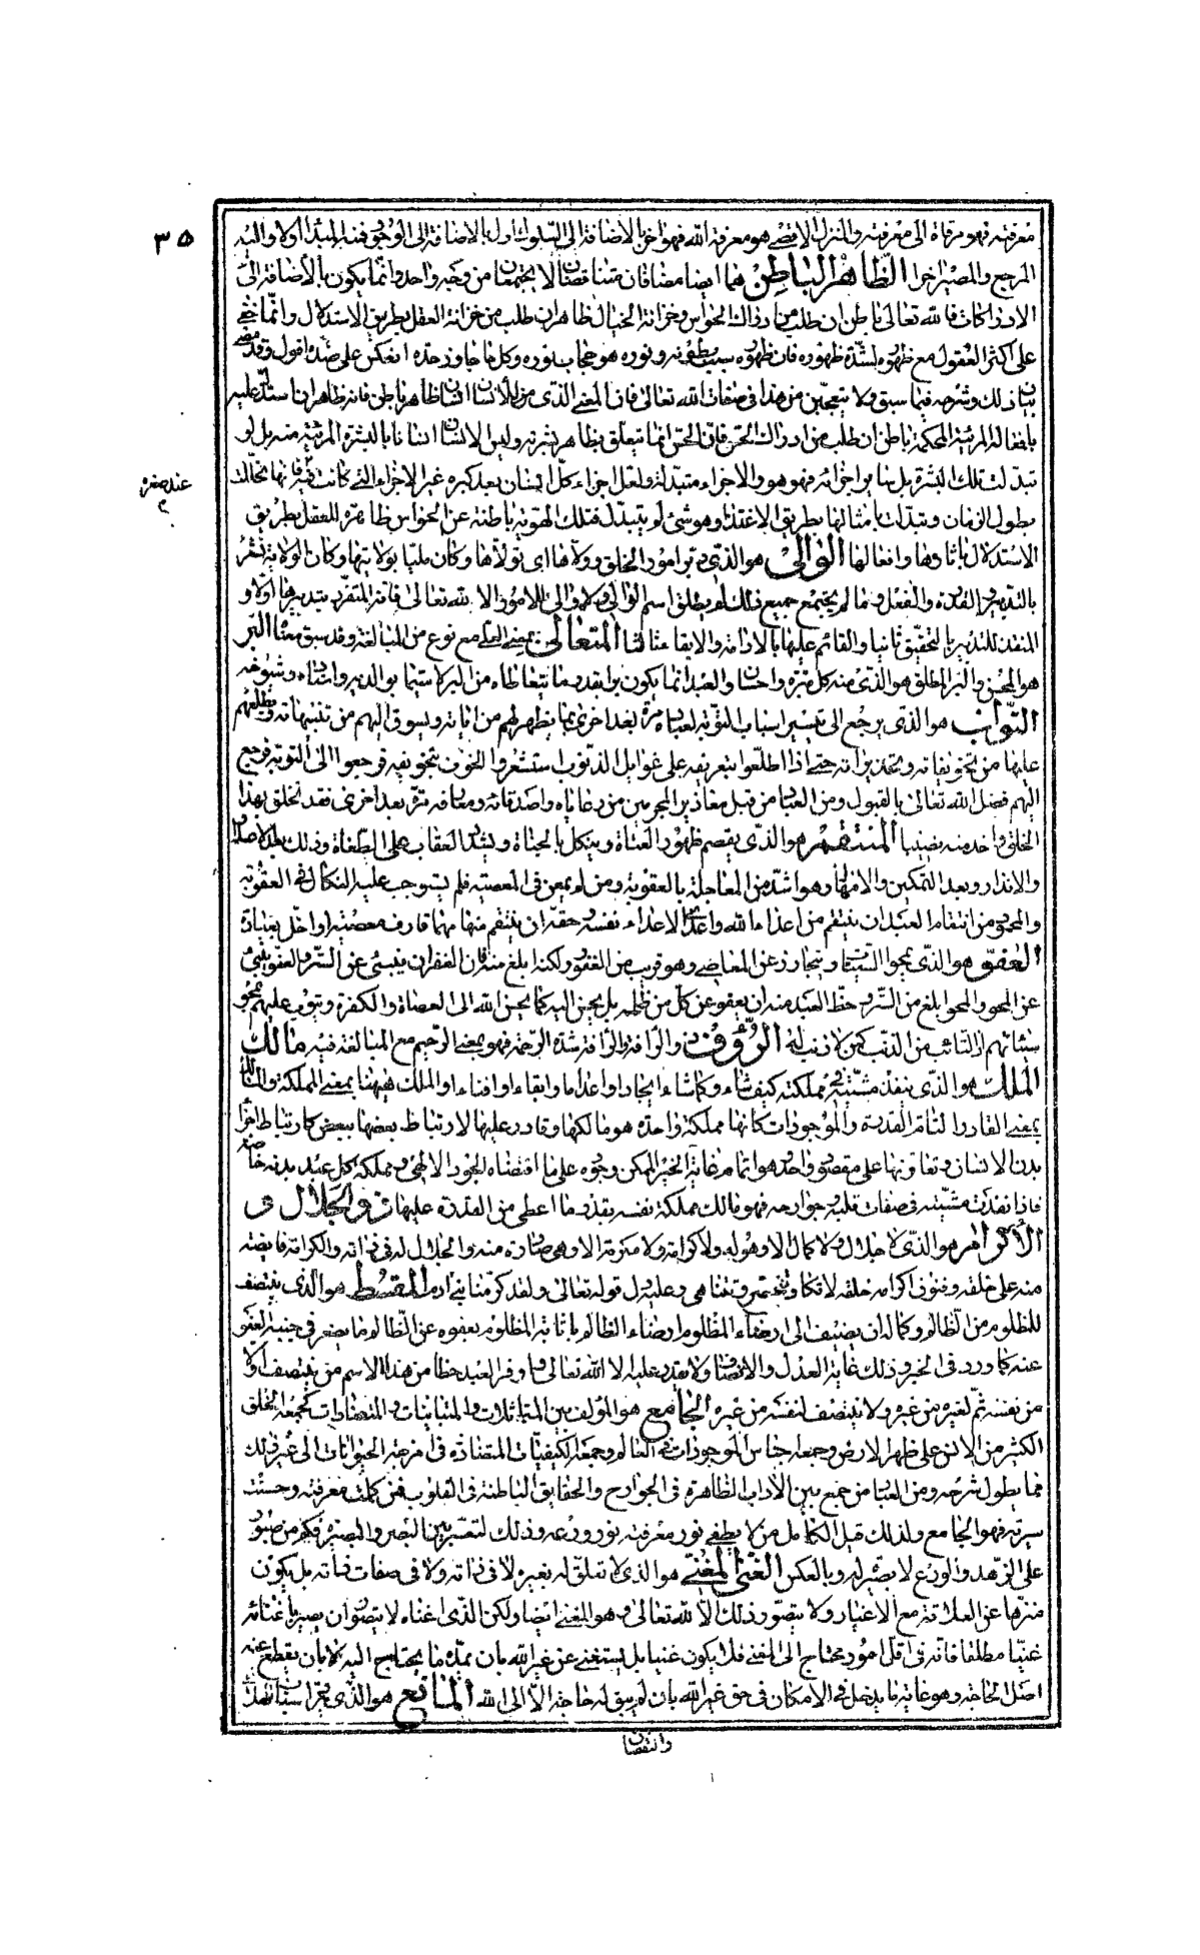 ٣٥
معرفته فهو مرقاة الى معرفته والمنزل الاقصى هو معرفة الله فهو اخر بالاضافة الى السلوك اول بالاضافة الى الوجود فمنه المبدا اولا واليه
المرجع والمصير اخرا الظاهر الباطن هما ايضا مضافان متناقضان لا يجتمعان من وجه واحد وانما يكون بالاضافة الى
الادراكات فالله تعالى باطن ان طلب من ادراك الحواس وخزانة الخيال ظاهر ان طلب من خزانة العقل بطريق الاستدلال وانما خفى
على اكثر العقول مع ظهوره لشدة ظهوره فان ظهوره سبب بطونه ونوره هو حجاب نوره وكل ما جاوز حده انعكس على ضده اقول وقد مضى
بيان ذلك وشرحه فيما سبق ولا يتعجبن من هذا فى صفات الله تعالى فان المعنى الذى من الانسان انسان ظاهر باطن فانه ظاهر ان استدل عليه
بافعاله المرتبة المحكمة باطن ان طلب من ادراك الحس فان الحس انما يتعلق بظاهر بشرته وليس الانسان انسانا بالبشرة المرئية منه بل لو
تبدلت تلك البشرة بل سائر اجزائه فهو هو والاجزاء متبدلة ولعل اجزاء كل انسان بعد كبره غير الاجزاء التى كانت فيه فانها تحللت
عند صغره
بطول الزمان وتبدلت بامثالها بطريق الاغتذاء وهو شئ لم يتبدل فتلك الهوية باطنة عن الحواس ظاهرة للعقل بطريق
الاستدلال باثارها وافعالها الوالى هو الذى دبر امور الخلق وولاها اى تولاها وكان مليا بولايتها وكان الولاية تشعر
بالتدبير والقدرة والفعل وما لم يجتمع جميع ذلك لم يطلق اسم الوالى ولا والى للامور الا الله تعالى فانه المتفرد بتدبيرها اولا و
المنفذ للتدبير بالتحقيق ثانيا والقائم عليها بالادامة والابقاء ثالثا المتعالى بمعنى العلى مع نوع من المبالغة وقد سبق معناه البر
هو المحسن والبر المطلق هو الذى منه كل مبرة واحسان والعبد انما يكون برا بقدر ما يتعاطاه من البر لا سيما بوالديه واستاذه وشيوخه
التواب هو الذى يرجع الى تيسير اسباب التوبة لعباده مرة بعد اخرى بما يظهر لهم من اياته ويسوق اليهم من تنبيهاته ويطلعهم
عليها من تخويفاته وتحذيراته حتى اذا اطلعوا بتعريفه على غوايل الذنوب استشعروا الخوف بتخويفه فرجعوا الى التوبة فرجع
اليهم فضل الله تعالى بالقبول ومن العباد من قبل معاذير المجرمين من رعاياه واصدقائه ومعارفه مرة بعد اخرى فقد تخلق بهذا
الخلق واخذ منه نصيبا المنتقم هو الذى يقصم ظهور العتاة وينكل بالجناة ويشدد العقاب على الطغاة وذلك بعد الاعذار
والانذار وبعد التمكين والامهال وهو اشد من المعاجلة بالعقوبة ومن لم يمعن فى المعصية فلم يستوجب عليه النكال فى العقوبة
والمحمود من انتقام العبد ان ينتقم من اعداء الله واعدى الاعداء نفسه وحقه ان ينتقم منها مهما قارف معصية او اخل بعبادة
العفو هو الذى يمحو السيئات ويتجاوز عن المعاصى وهو قريب من الغفور ولكنه ابلغ منه فان الغفران ينبئ عن الستر والعفو ينبئ
عن المحو والمحو ابلغ من الستر وحظ العبد منه ان يعفو عن كل من ظلمه بل يحسن اليه كما يحسن الله الى العصاة والكفرة ويتوب عليهم بمحو
سيئاتهم اذ التائب من الذنب كمن لا ذنب له الرؤف ذو الرأفة والرأفة شدة الرحمة فهو بمعنى الرحيم مع المبالغة فيه مالك
الملك هو الذى ينفذ مشيته فى مملكته كيف شاء وكما شاء ايجادا واعداما وابقاء وافناء والملك هيهنا بمعنى المملكة والمالك
بمعنى القادر التام القدرة والموجودات كانها مملكة واحدة هو مالكها وقادر عليها لارتباط بعضها ببعض كارتباط اجزاء
بدن الانسان وتعاونها على مقصود واحد هو اتمام غاية الخير الممكن وجوده على ما اقتضاه الجود الالهى ومملكة كل عبد بدنه خاصة
فاذا نفذت مشيته فى صفات قلبه وجوارحه فهو مالك مملكة نفسه بقدر ما اعطى من القدرة عليها ذو الجلال و
الاكرام هو الذى لا جلال ولا كمال الا وهو له ولا كرامة ولا مكرمة الا وهى صادرة منه والجلال له فى ذاته والكرامة فايضة
منه على خلقه وفنون اكرامه خلقه لا تكاد تنحصر وتتناهى وعليه دل قوله تعالى ولقد كرمنا بنى ادم المقسط هو الذى ينتصف
للمظلوم من الظالم وكماله ان يضيف الى ارضاء المظلوم ارضاء الظالم باثابة المظلوم بعفوه عن الظالم ما يصغر فى جنبه العفو
عنه كما ورد فى الخبر وذلك غاية العدل والانصاف ولا يقدر عليه الا الله تعالى واوفر العبد حظا من هذا الاسم من ينتصف اولا
من نفسه ثم لغيره من غيره ولا ينتصف لنفسه من غيره الجامع هو المؤلف بين المتماثلات والمتباينات والمتضادات كجمعه الخلق
الكثير من الانس على ظهر الارض وجمعه اجناس الموجودات فى العالم وجمعه الكيفيات المتضادة فى امزجة الحيوانات الى غير ذلك
مما يطول شرحه ومن العباد من جمع بين الاداب الظاهرة فى الجوارح والحقايق الباطنة فى القلوب فمن كملت معرفته وحسنت
سيرته فهو الجامع ولذلك قيل الكامل من لا يطفى نور معرفته نور ورعه وذلك لتعسر بين البصر والبصيرة فكم من صبور
على الزهد والورع لا بصيرة له وبالعكس الغنى المغنى هو الذى لا تعلق له بغيره لا فى ذاته ولا فى صفات ذاته بل يكون
منزها عن العلاقة مع الاغيار ولا يتصور ذلك الا لله تعالى وهو المغنى ايضا ولكن الذى اغناه لا يتصور ان يصير باغنائه
غنيا مطلقا فانه فى اقل اموره محتاج الى المغنى فلا يكون غنيا بل يستغنى عن غير الله بان يمده ما يحتاج اليه لا بان يقطع عنه
اصل الحاجة وهو غاية ما يدخل فى الامكان فى حق غير الله بان لم يبق له حاجة الا الى الله المانع هو الذى يرد اسباب الهلاك
والنقصان